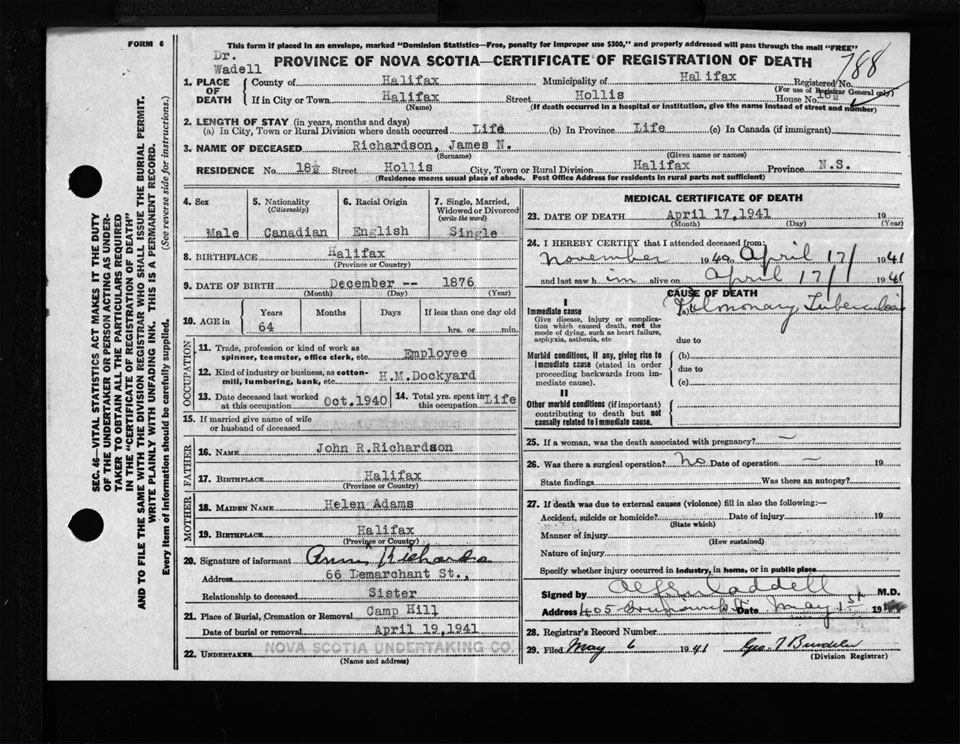 FORM 6
This form if placed in an envelope, marked "Dominion Statistics—Free, penalty for improper use $300," and properly addressed will pass through the mail "FREE"
Dr.
Wadell
PROVINCE OF NOVA SCOTIA—CERTIFICATE OF REGISTRATION OF DEATH
788
1. PLACE OF DEATH
County of Halifax Municipality of Halifax Registered No.
(For use of Registrar General only)
If in City or Town Halifax Street Hollis House No. 18½
(Name) (If death occurred in a hospital or institution, give the name instead of street and number)
2. LENGTH OF STAY (in years, months and days)
(a) In City, Town or Rural Division where death occurred Life (b) In Province Life (c) In Canada (if immigrant)
3. NAME OF DECEASED Richardson, James N.
(Surname) (Given name or names)
RESIDENCE No. 18½ Street Hollis City, Town or Rural Division Halifax Province N.S.
(Residence means usual place of abode. Post Office Address for residents in rural parts not sufficient)
4. Sex
Male
5. Nationality
(Citizenship)
Canadian
6. Racial Origin
English
7. Single, Married, Widowed or Divorced
(write the word)
Single
8. BIRTHPLACE Halifax
(Province or Country)
9. DATE OF BIRTH December -- 1876
(Month) (Day) (Year)
10. AGE in Years Months Days If less than one day old
64 hrs. or min.
OCCUPATION
11. Trade, profession or kind of work as
spinner, teamster, office clerk, etc. Employee
12. Kind of industry or business, as cotton-
mill, lumbering, bank, etc. H.M.Dockyard
13. Date deceased last worked
at this occupation Oct.1940
14. Total yrs. spent in
this occupation Life
15. If married give name of wife
or husband of deceased
FATHER
16. NAME John R.Richardson
17. BIRTHPLACE Halifax
(Province or Country)
MOTHER
18. MAIDEN NAME Helen Adams
19. BIRTHPLACE Halifax
(Province or Country)
20. Signature of informant
Address 66 Lemarchant St.,
Relationship to deceased Sister
21. Place of Burial, Cremation or Removal Camp Hill
Date of burial or removal April 19,1941
22. UNDERTAKER NOVA SCOTIA UNDERTAKING CO.
(Name and address)
MEDICAL CERTIFICATE OF DEATH
23. DATE OF DEATH April 17,1941 19
(Month) (Day) (Year)
24. I HEREBY CERTIFY that I attended deceased from:
November 1940 April 17 1941
and last saw him alive on April 17 1941
CAUSE OF DEATH
I
Immediate cause
Give disease, injury or complica-
tion which caused death, not the
mode of dying, such as heart failure,
asphyxia, asthenia, etc
(a) Pulmonary Tuberculosis
due to
Morbid conditions, if any, giving rise to
immediate cause (stated in order
proceeding backwards from im-
mediate cause).
(b)
due to
(c)
II
Other morbid conditions (if important)
contributing to death but not
causally related to immediate cause.
25. If a woman, was the death associated with pregnancy? —
26. Was there a surgical operation? No Date of operation — 19
State findings Was there an autopsy?
27. If death was due to external causes (violence) fill in also the following:—
Accident, suicide or homicide? Date of injury 19
(State which)
Manner of injury
(How sustained)
Nature of injury
Specify whether injury occurred in industry, in home, or in public place
Signed by M.D.
Address 405 Date May 1st 19
28. Registrar's Record Number
29. Filed May 6 1941
(Division Registrar)
SEC. 46—VITAL STATISTICS ACT MAKES IT THE DUTY
OF THE UNDERTAKER OR PERSON ACTING AS UNDER-
TAKER TO OBTAIN ALL THE PARTICULARS REQUIRED
IN THE "CERTIFICATE OF REGISTRATION OF DEATH"
AND TO FILE THE SAME WITH THE DIVISION REGISTRAR WHO SHALL ISSUE THE BURIAL PERMIT.
WRITE PLAINLY WITH UNFADING INK. THIS IS A PERMANENT RECORD.
Every item of information should be carefully supplied. (See reverse side for instructions.)